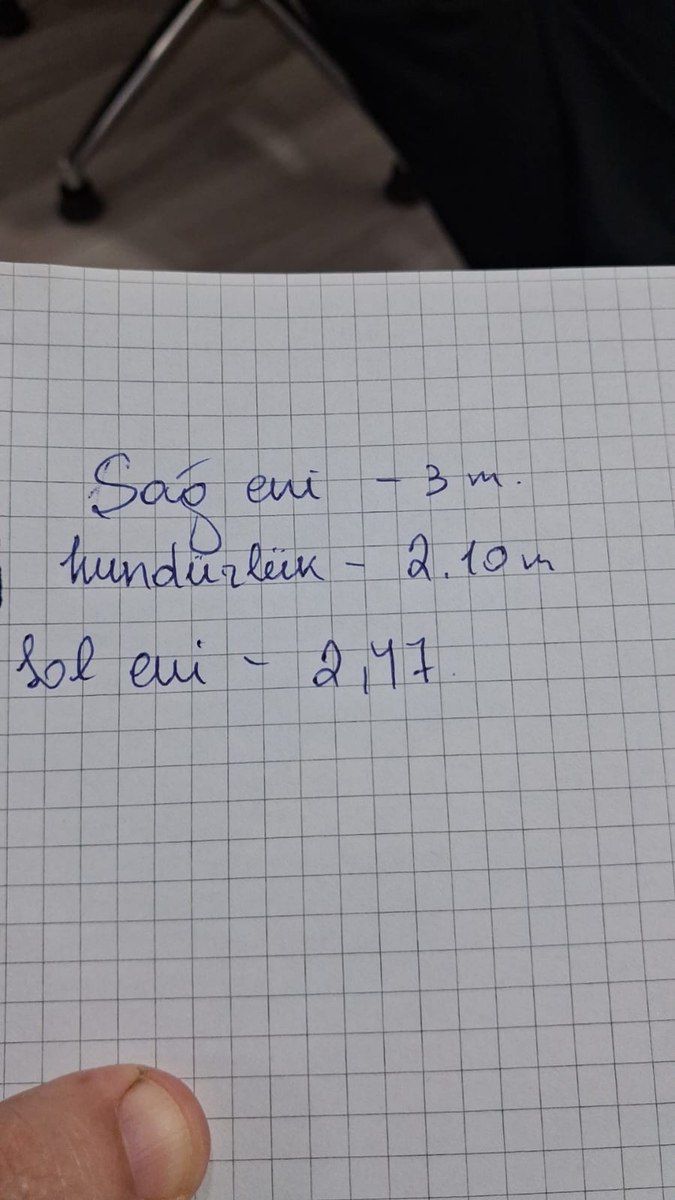 Sağ eni - 3 m.
hündürlük - 2.10 m
Sol eni - 2,47